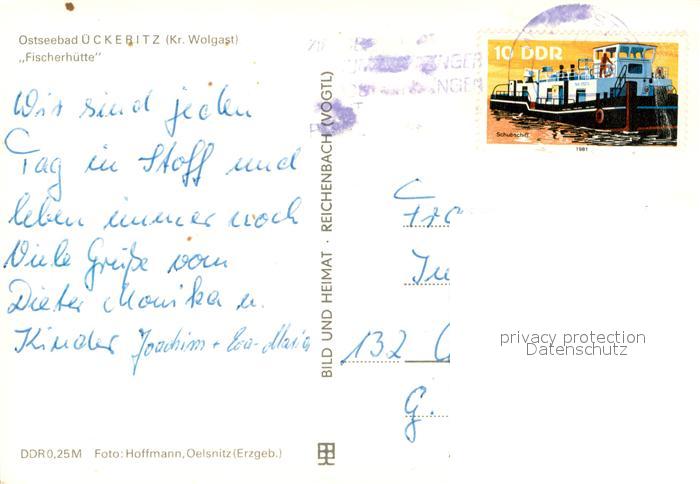 Ostseebad ÜCKERITZ (Kr. Wolgast)
„Fischerhütte"
Wir sind jeden
Tag in Stoff und
leben immer noch
Viele Grüße vom
Dieter Monika u.
Kinder Joachim + Eva-Maria
DDR 0,25 M Foto: Hoffmann, Oelsnitz (Erzgeb.)
BILD UND HEIMAT · REICHENBACH (VOGTL)
10 DDR
Schubschiff
1981
132
G.
privacy protection
Datenschutz